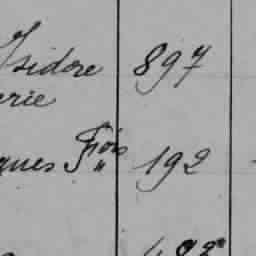 Isidore 897
erie
ques Fçois 192
"